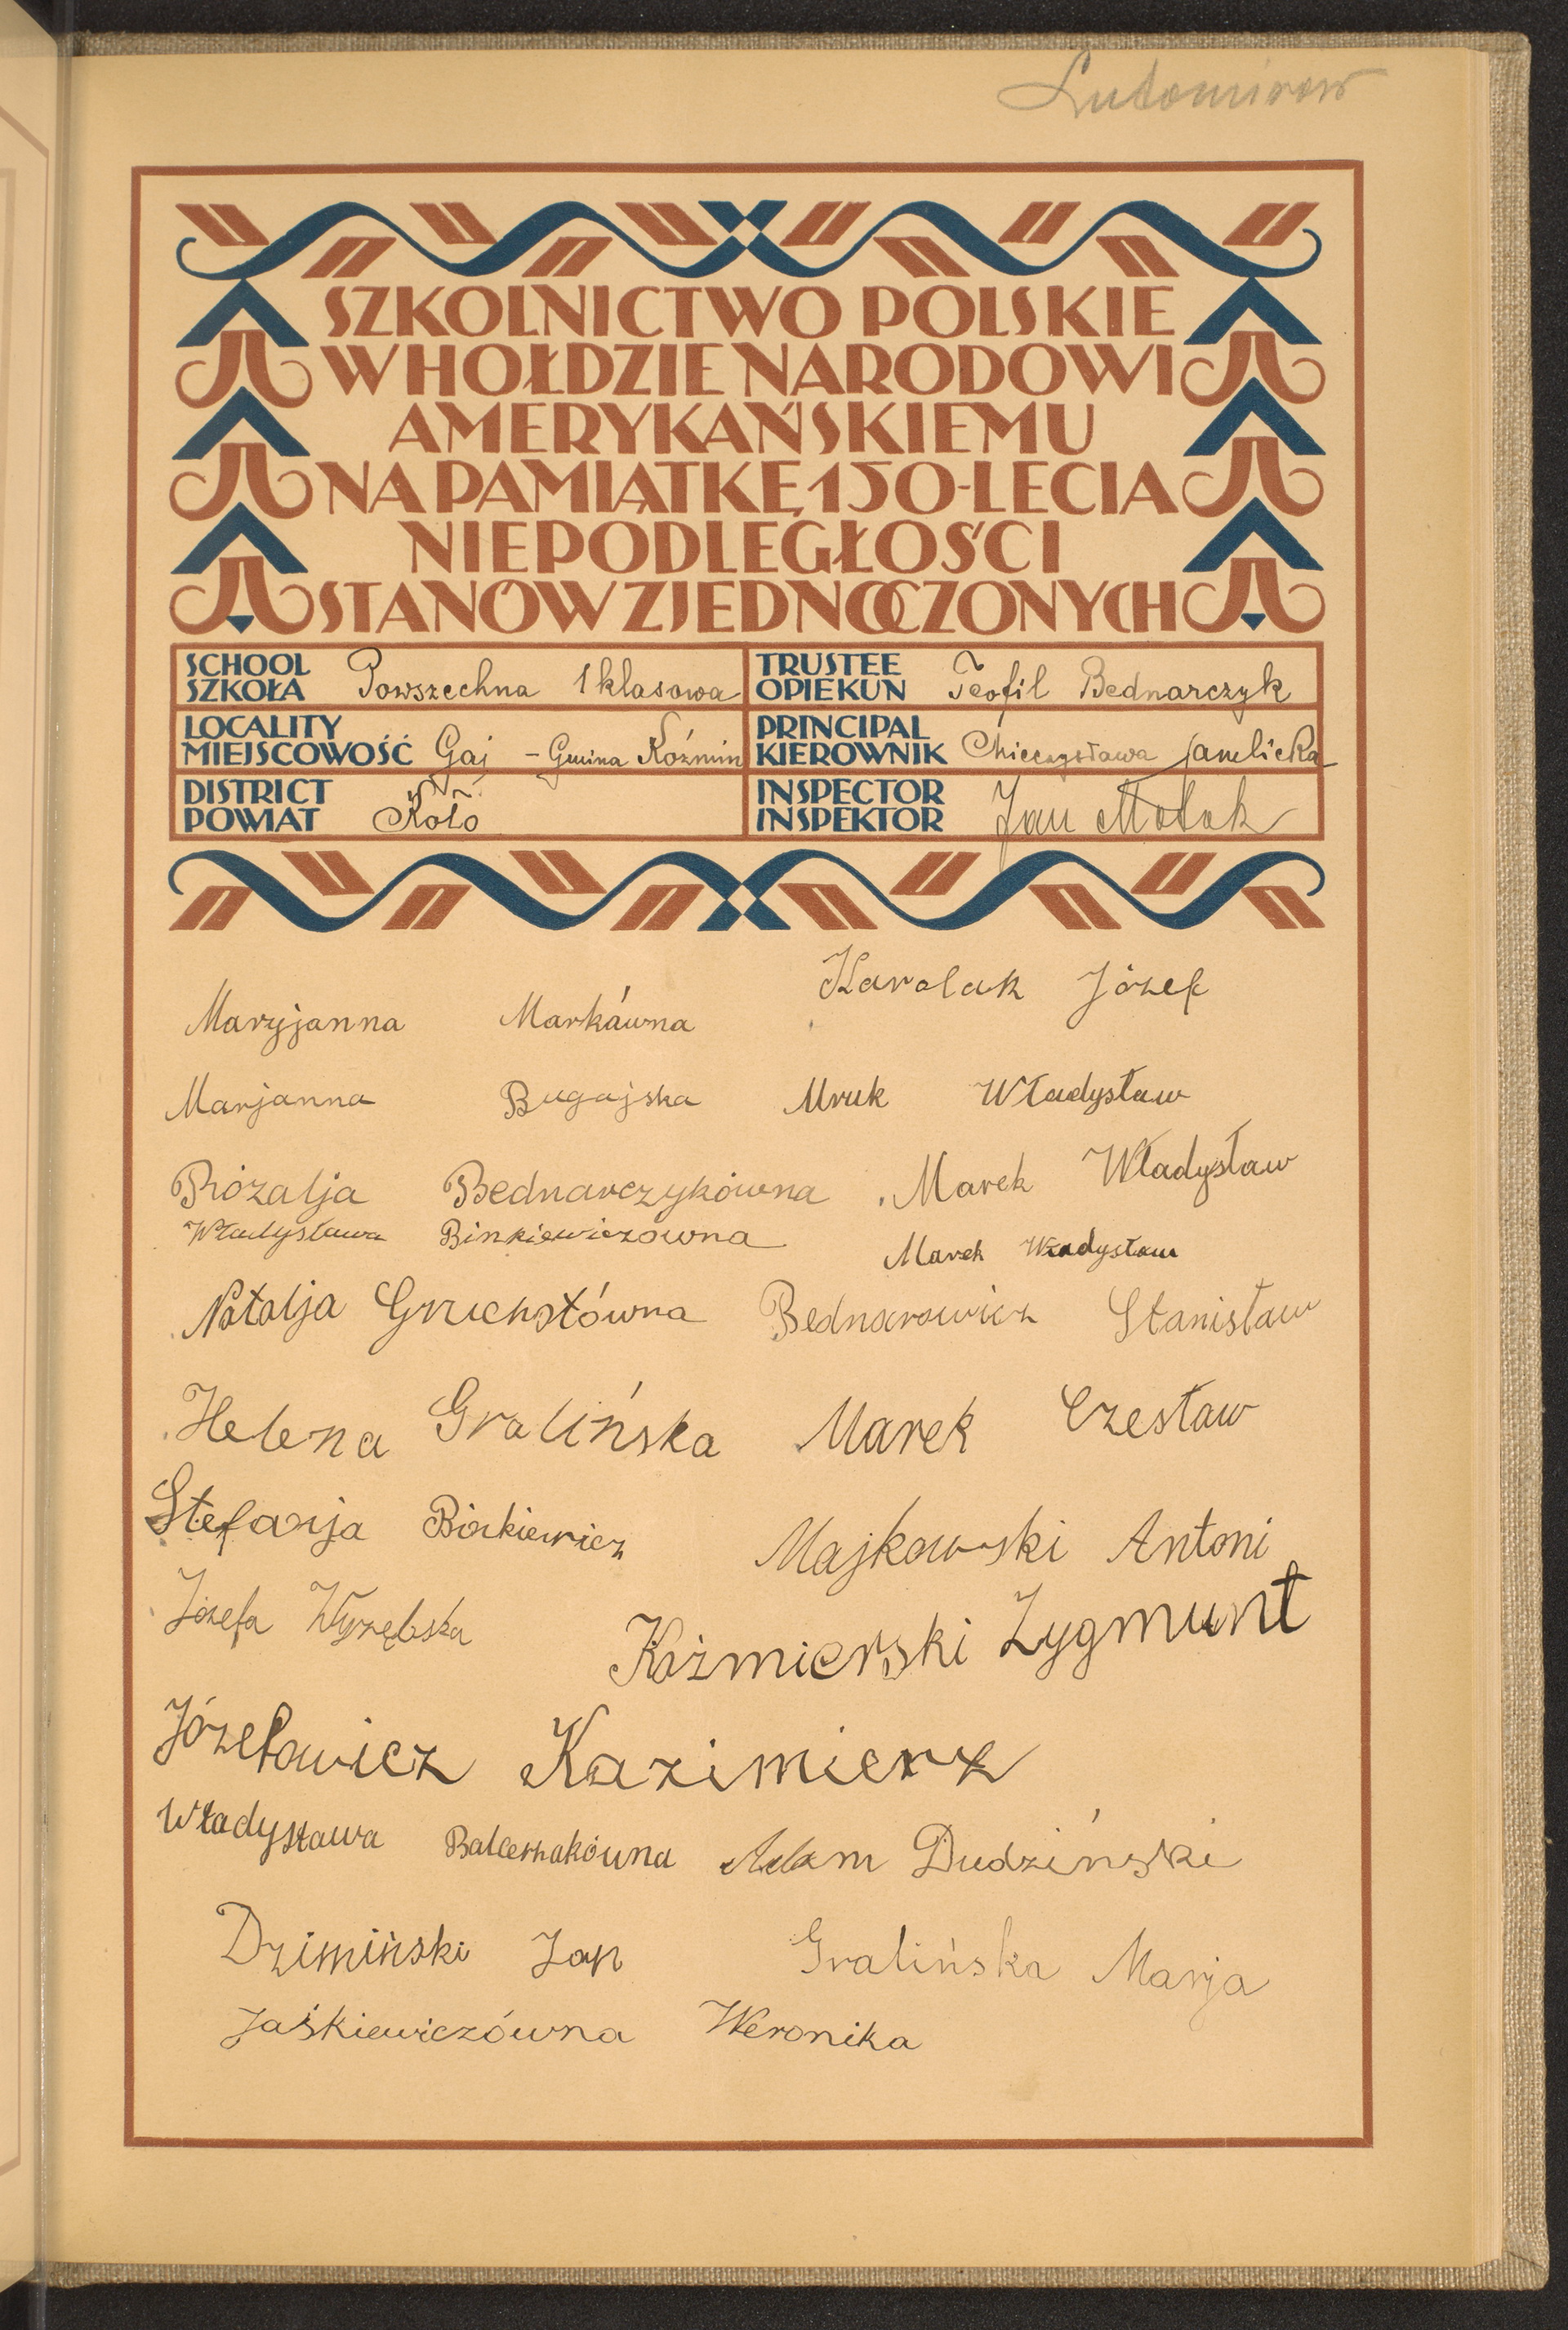 Lutomirow
SZKOLNICTWO POLSKIE
W HOŁDZIE NARODOWI
AMERYKAŃSKIEMU
NA PAMIĄTKĘ 150-LECIA
NIEPODLEGŁOŚCI
STANÓW ZJEDNOCZONYCH
SCHOOL SZKOŁA Powszechna 1 klasowa
TRUSTEE OPIEKUN Teofil Bednarczyk
LOCALITY MIEJSCOWOŚĆ Gaj - Gmina Koźmin
PRINCIPAL KIEROWNIK Mieczysława
DISTRICT POWIAT Koło
INSPECTOR INSPEKTOR Jan
Karolak Józef
Maryjanna Markówna
Marjanna Bugajska Mruk Władysław
Rózalja Bednarczykówna Marek Władysław
Władysława Binkiewiczówna Marek Władysław
Natalja Gruchotówna Bednarowicz Stanisław
Helena Gralińska Marek Czesław
Stefanja Binkiewicz Majkowski Antoni
Józefa Wyrębska Kaźmierski Zygmunt
Józefowicz Kazimierz
Władysława Balcerzakówna Adam Dudziński
Dzimiński Jan Gralińska Marja
Jaśkiewiczówna Weronika